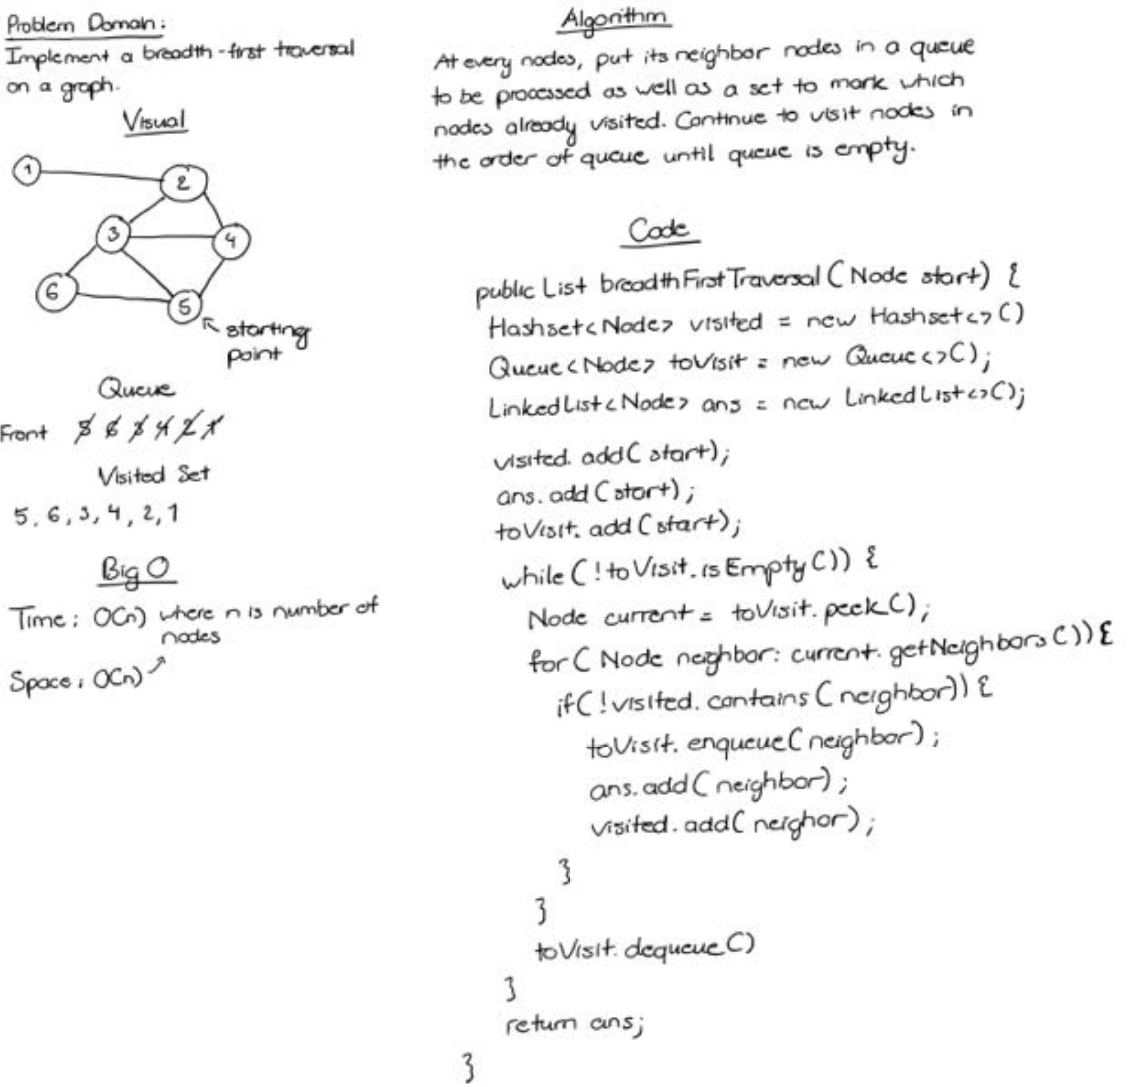 Problem Domain:
Implement a breadth-first traversal
on a graph.
Visual
1
2
3
4
6
5
starting
point
Queue
Front 5 6 3 4 2 1
Visited Set
5, 6, 3, 4, 2, 1
Big O
Time: O(n) where n is number of
nodes
Space: O(n)
Algorithm
At every nodes, put its neighbor nodes in a queue
to be processed as well as a set to mark which
nodes already visited. Continue to visit nodes in
the order of queue until queue is empty.
Code
public List breadthFirstTraversal (Node start) {
Hashset<Node> visited = new Hashset<>()
Queue<Node> toVisit = new Queue<>();
LinkedList<Node> ans = new LinkedList<>();
visited.add(start);
ans.add(start);
toVisit.add(start);
while (!toVisit.isEmpty()) {
Node current = toVisit.peek();
for (Node neighbor: current.getNeighbors()) {
if(!visited.contains(neighbor)) {
toVisit.enqueue(neighbor);
ans.add(neighbor);
visited.add(neighor);
}
}
toVisit.dequeue()
}
return ans;
}